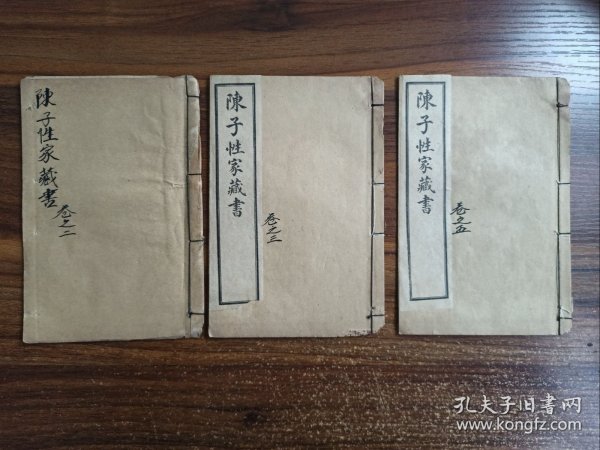 陳子性家藏書
卷之二
陳子性家藏書
卷之三
陳子性家藏書
卷之五
孔夫子旧書网
www.kongfz.com